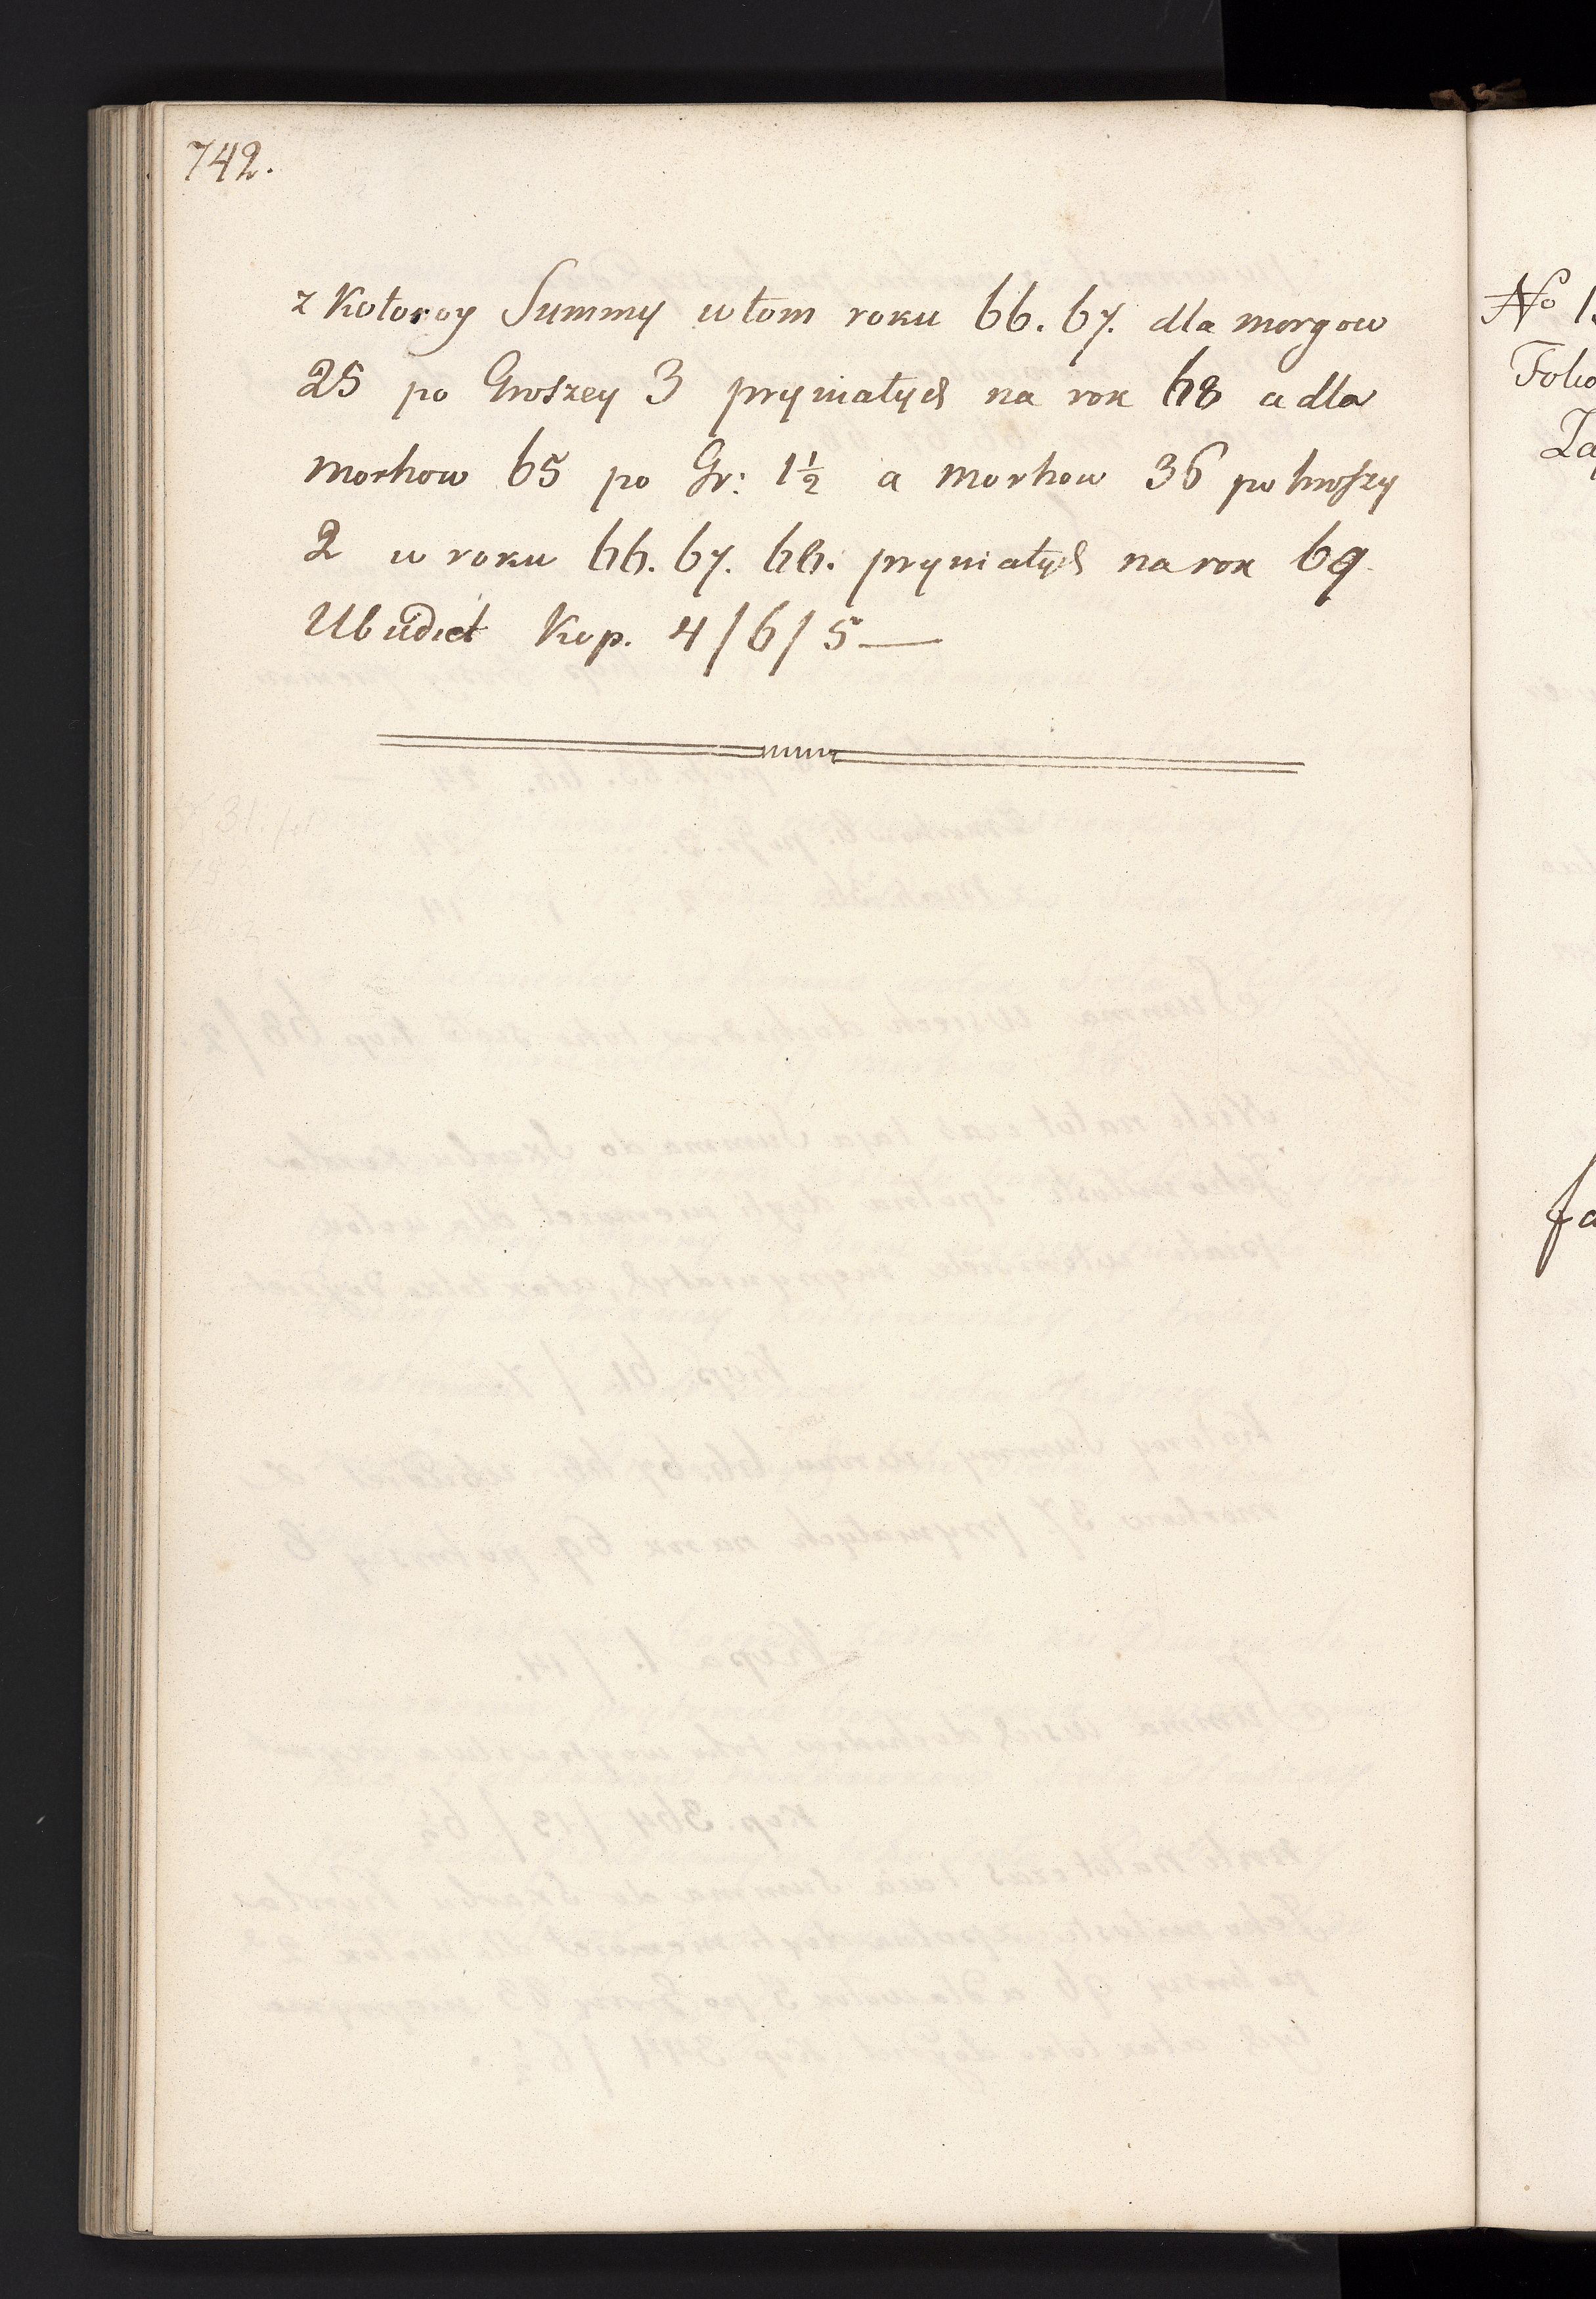 742.
z Kotoroy Summy wtom roku 66. 67. dla morgow
25 po Groszey 3 pryniatych na rok 68 a dla
morhow 65 po Gr: 1½ a morhow 36 po hroszy
2 w roku 66. 67. 68. pryniatych na rok 69.
Ubudiet Kop. 4/6/5—
No
Folio